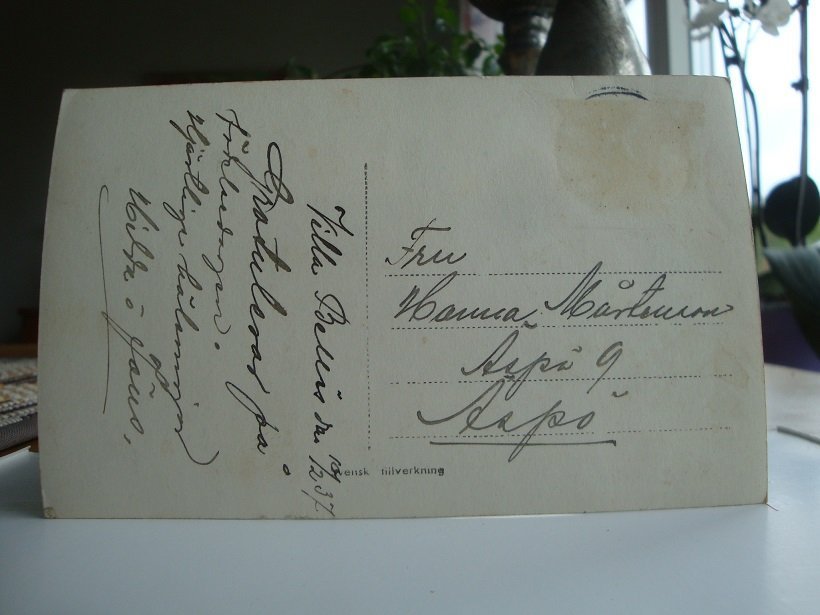 Villa Bellis den 10/12 37.
Gratulerar på
födelsedagen.
Hjärtliga hälsningar
Hilda o Jöns.
Fru
Hanna Mårtenson
Aspö 9
Aspö
Svensk tillverkning